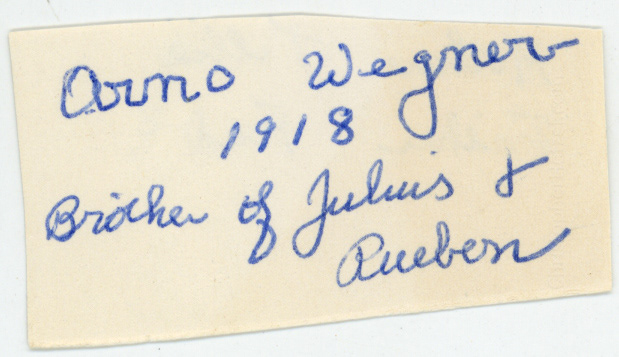 Arno Wegner
1918
Brother of Julius &
Rueben